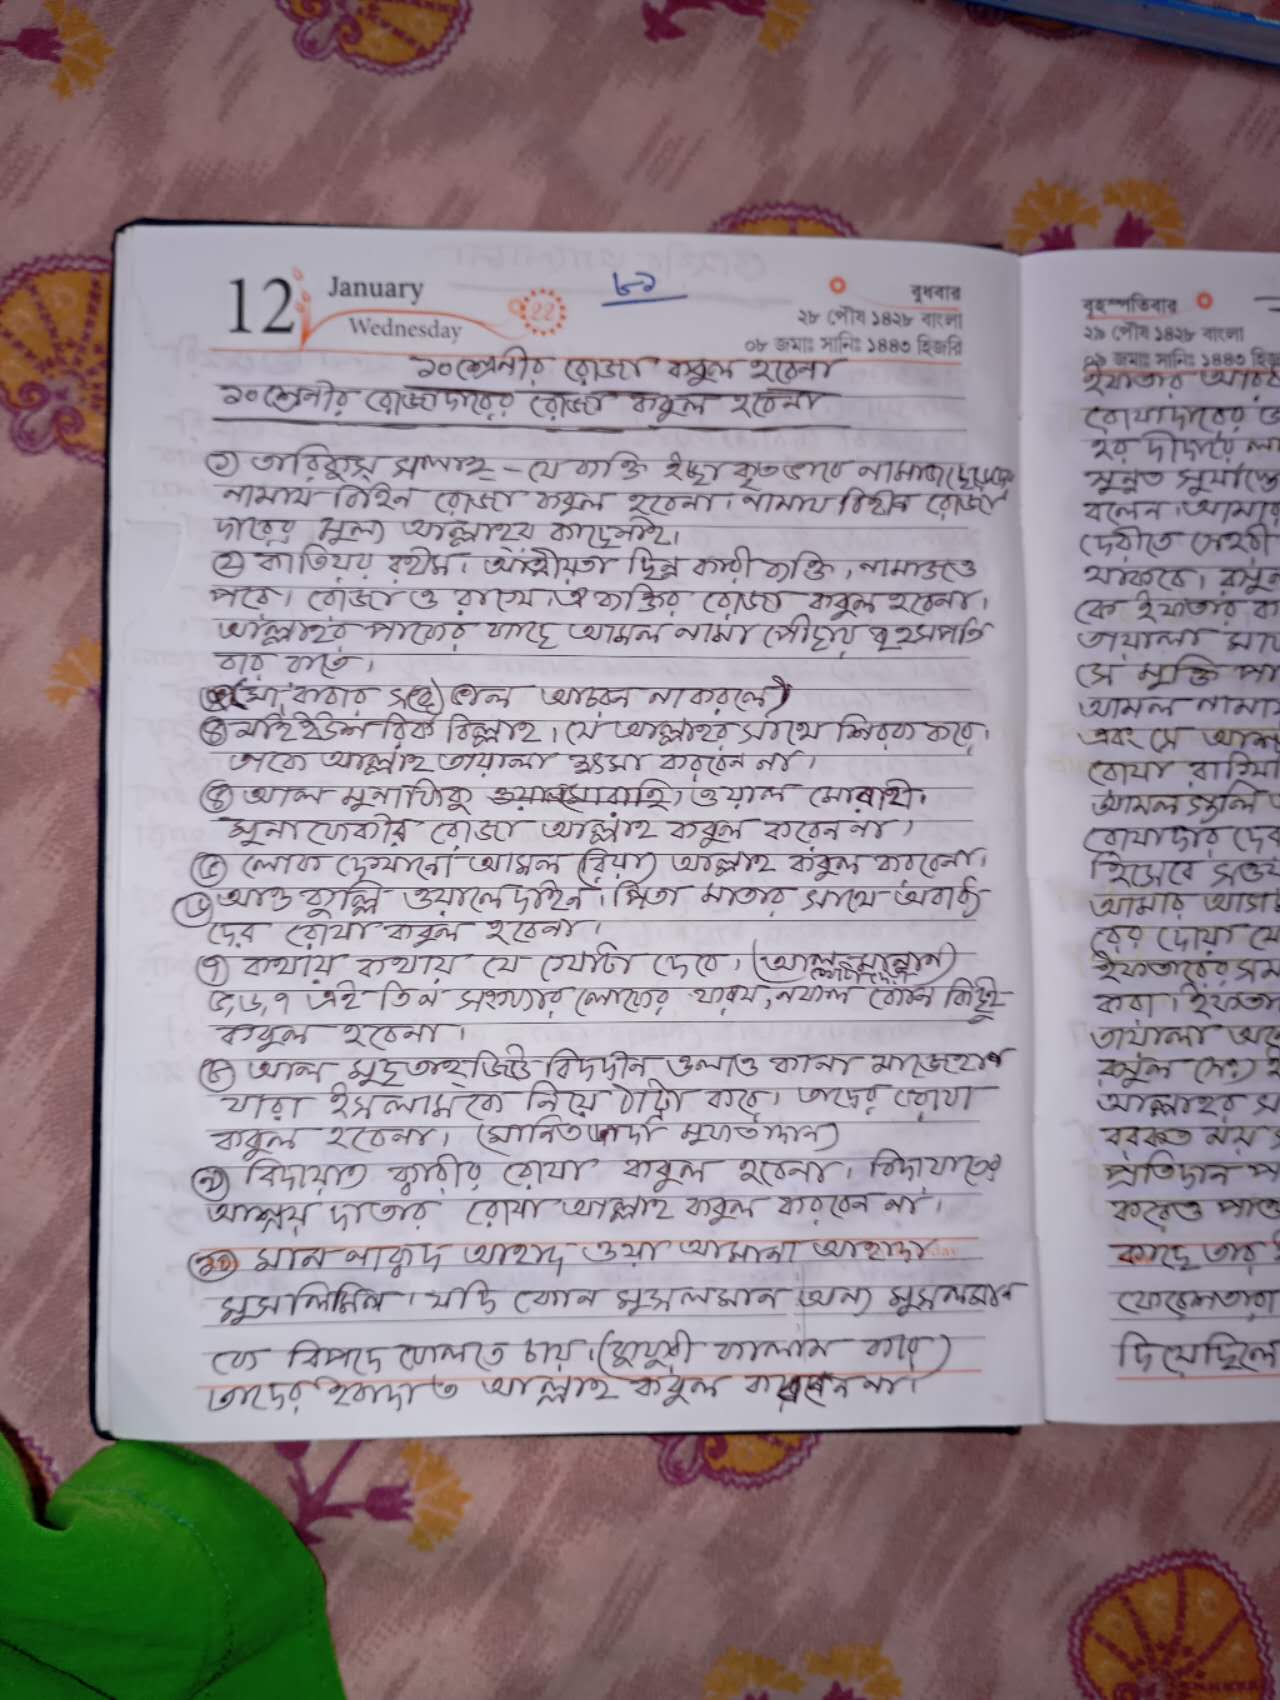 12
January
Wednesday
22
৮১
বুধবার
২৮ পৌষ ১৪২৮ বাংলা
০৮ জমাঃ সানিঃ ১৪৪৩ হিজরি
১০ শ্রেনীর রোজা কবুল হবেনা
১০ শ্রেনীর রোজাদারের রোজা কবুল হবেনা
১) তারিকুস্ সালাহ্ - যে ব্যক্তি ইচ্ছা কৃতভাবে নামাজ
নামায বিহিন রোজা কবুল হবেনা। নামায বিহীন রোজা
দারের মুল্য আল্লাহর কাছে নাই।
২) কাতিয়র রহীম। আত্মীয়তা ছিন্ন কারী ব্যক্তি, নামাজও
পরে। রোজা ও রাখে। ঐ ব্যক্তির রোজা কবুল হবেনা।
আল্লাহর পাকের কাছে আমল নামা পৌছায় বৃহসপতি
বার রাতে।
(মা, বাবার সঙ্গে) ভাল আচরন না করলে)
৩ মাই ইউশ রিক বিল্লাহ। যে আল্লাহর সাথে শিরক করে।
তাকে আল্লাহ তায়ালা ক্ষমা করবেন না।
৪ আল মুনাফিকু ওয়াল মোরাহি।
মুনাফেকীর রোজা আল্লাহ কবুল করেন না।
৫ লোক দেখানো আমল (রিয়া) আল্লাহ কবুল করবেনা।
৬ আও কুল্লি ওয়ালেদাইন। পিতা মাতার সাথে অবাধ্য
দের রোযা কবুল হবেনা।
৭) কথায় কথায় যে খোটা দেবে। (আল-মান্নান)
৫,৬,৭ এই তিন সংখ্যার লোকের ফরয, নফল কোন কিছুই
কবুল হবেনা।
৮ আল মুছতাহ্জিউ বিদদীন ওলাও কানা মাজেহান
যারা ইসলামকে নিয়ে ঠাট্টা করে। তাদের রোযা
কবুল হবেনা।
৯ বিদায়াত ক্বারীর রোযা কবুল হবেনা। বিদায়াতের
আশ্রয় দাতার রোযা আল্লাহ কবুল করবেন না।
১০ মান নারাদ আহাদ ওয়া আমালা আহাদা
মুসলিমিন। যদি কোন মুসলমান অন্য মুসলমান
কে বিপদে ফেলতে চায়। (কুফুরী কালাম করে)
তাদের ইবাদাত আল্লাহ কবুল করবেন না।
বৃহস্পতিবার
২৯ পৌষ ১৪২৮ বাংলা
০৯ জমাঃ সানিঃ ১৪৪৩
রোযাদারের
হর দীদারে
সুন্নত সুর্যাস্তে
বলেন। আমার
দেরীতে সেহরী
থাকবে।
কে ইফতার
তায়ালা
সে মুক্তি
আমল নামায়
এবং সে
রোযা রাখিয়া
আমল গুলি
রোযাদার
হিসেবে সওয়া
আমার
রের দোয়া
ইফতারের
করা। ইফতা
তায়ালা
কবুল
আল্লাহর
বরকত ময়
প্রতিদান
করেও
কাছে তার
ফেরেশতারা
দিয়েছিলে